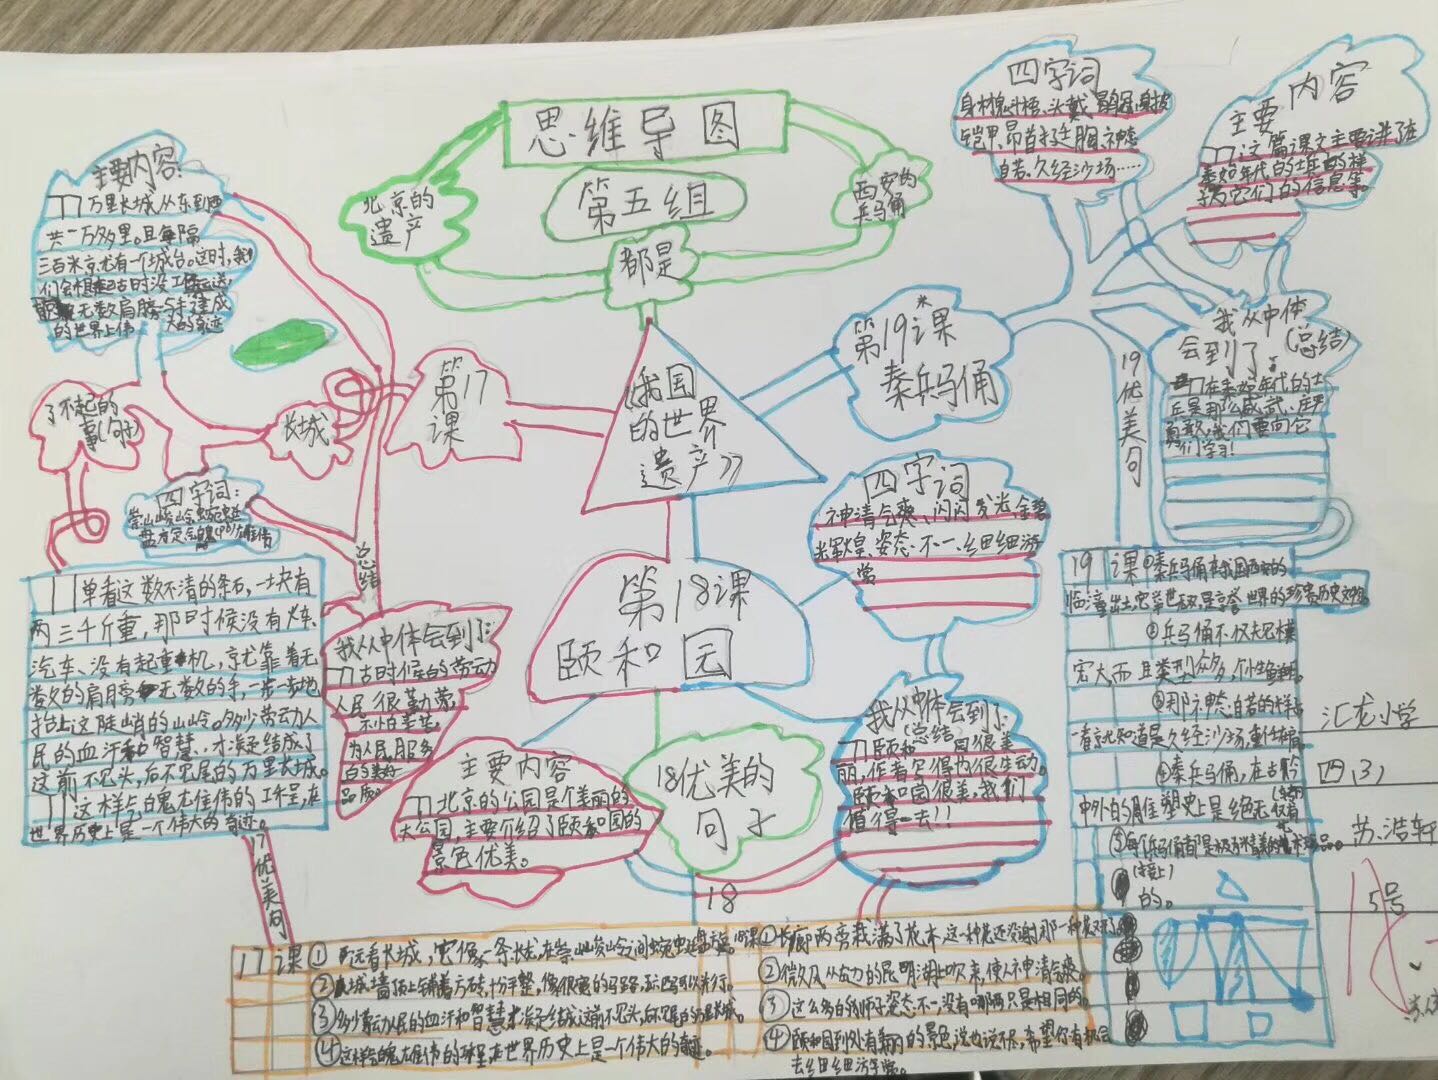 思维导图
第五组
北京的
遗产
西安的
兵马俑
都是
《我国
的世界
遗产》
第17
课
长城
主要内容:
万里长城,从东到西
共一万多里。且每隔
三百米就有一个城台。这时,我
们会想起古时没工
无数肩膀与手建成
的世界上伟大的奇迹
了不起的
事(句子)
四字词:
崇山峻岭、蜿蜒
盘旋
总结
单看这数不清的条石,一块有
两三千斤重,那时候没有火车、
汽车、没有起重机,就靠着无
数的肩膀无数的手,一步一步地
抬上这陡峭的山岭。多少劳动人
民的血汗和智慧,才凝结成
这前不见头,后不见尾的万里长城。
这样气魄雄伟的工程,在
世界历史上是一个伟大的奇迹。
我从中体会到了:
古时候的劳动
人民很勤劳,
不怕苦
为人民服务
的美好
品质。
17优美句
第18课
颐和园
主要内容
北京的公园是个美丽的
大公园,主要介绍了颐和园的
景色优美。
18优美的
句子
18
四字词
神清气爽、闪闪发光、金碧
辉煌、姿态不一、细细游
赏
我从中体会到了:
(总结)
颐和园很美
丽,作者写得也很生动。
颐和园很美,我们
值得一去!!
第19课
秦兵马俑
四字词
身材魁梧、头戴鹖冠、身披
铠甲、昂首挺胸、神态
自若、久经沙场……
主要内容
这篇课文主要讲了在
秦始年代的士兵的样
子及它们的信息等。
19优美句
我从中体
会到了:(总结)
在秦始年代的士
兵是那么威武、庄严
勇敢,我们要向它
们学习!
19课①秦兵马俑在我国西安的
临潼出土,它举世无双,是享誉世界的珍贵历史文物。
②兵马俑不仅规模
宏大,而且类型众多,个性鲜明。
③那神态自若的样子
一看就知道是久经沙场,重任在肩。
④秦兵马俑,在古今
中外的雕塑史上是绝无仅有
的。
(接上)
⑤每个兵马俑都是极为精美的艺术珍品。
汇龙小学
四(3)
苏浩轩
15号
17课①远看长城,它像一条长龙,在崇山峻岭之间蜿蜒盘旋。
②城墙顶上铺着方砖,十分平整,像很宽的马路,五六匹马可以并行。
③多少劳动人民的血汗和智慧才凝结成这前不见头,后不见尾的万里长城。
④这样气魄雄伟的工程,在世界历史上是一个伟大的奇迹。
18课①长廊两旁栽满了花木,这一种花还没谢,那一种花又开了。
②微风从左边的昆明湖上吹来,使人神清气爽。
③这么多的狮子,姿态不一,没有哪两只是相同的。
④颐和园到处有美丽的景色,说也说不尽,希望你有机会
去细细游赏。